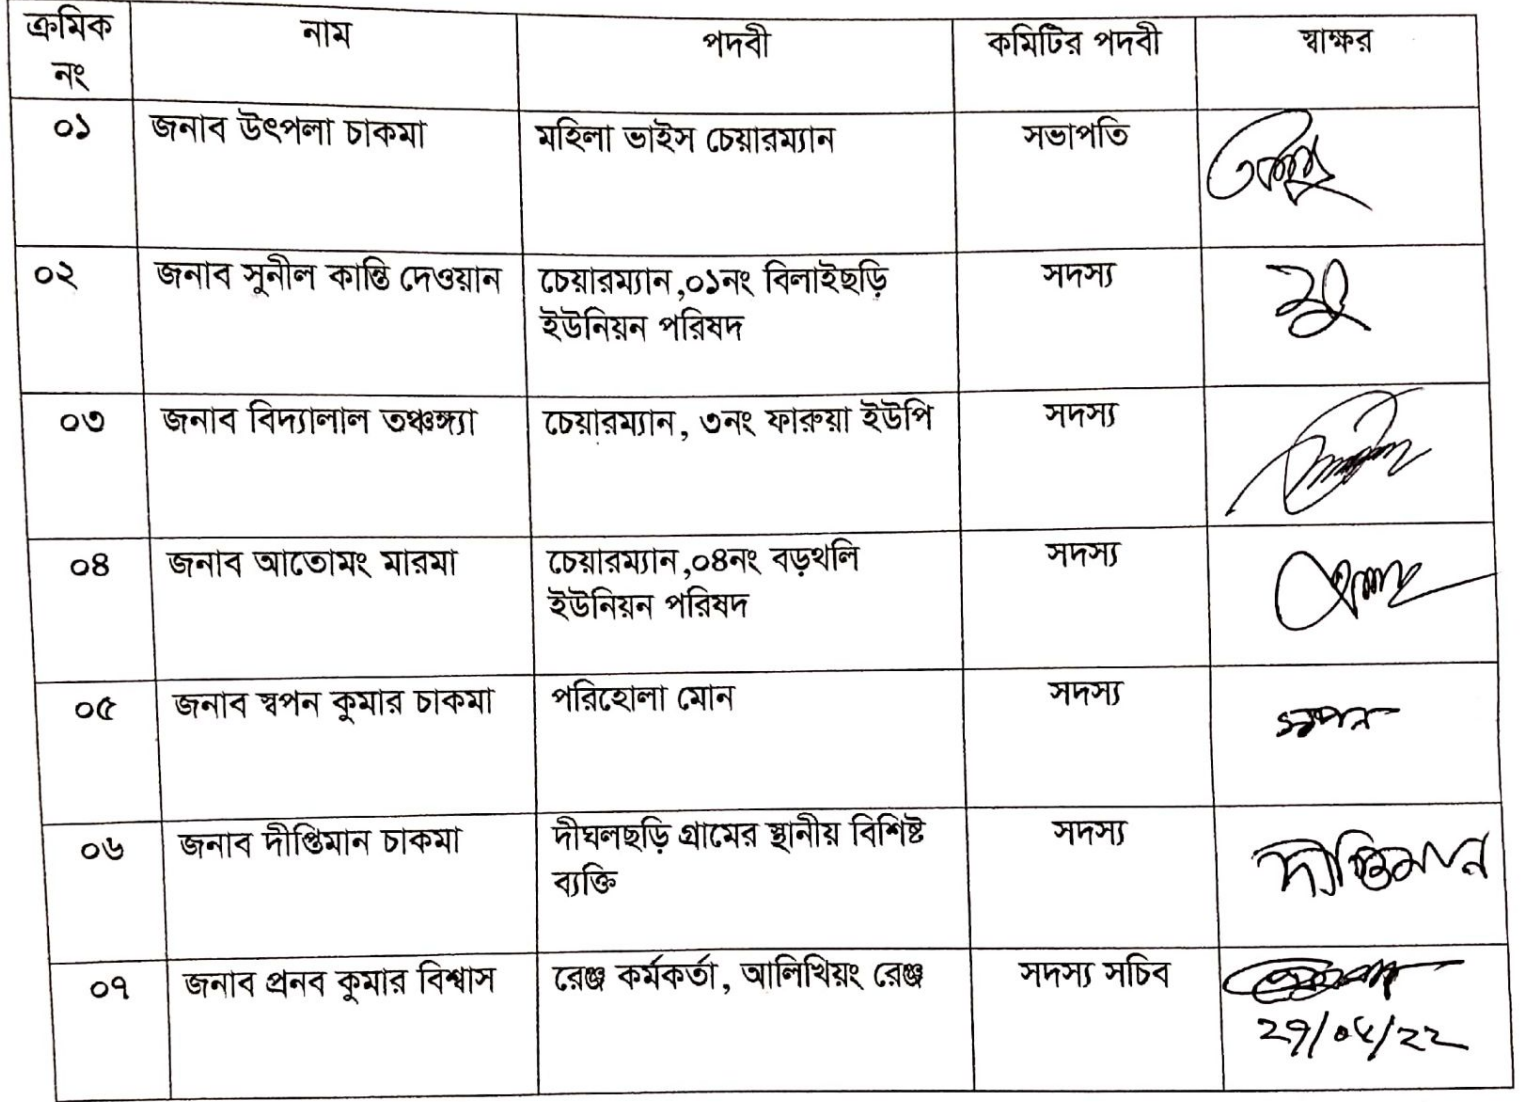 ক্রমিক নাম পদবী কমিটির পদবী স্বাক্ষর
নং
০১ জনাব উৎপলা চাকমা মহিলা ভাইস চেয়ারম্যান সভাপতি
০২ জনাব সুনীল কান্তি দেওয়ান চেয়ারম্যান,০১নং বিলাইছড়ি সদস্য
ইউনিয়ন পরিষদ
০৩ জনাব বিদ্যালাল তঞ্চঙ্গ্যা চেয়ারম্যান, ৩নং ফারুয়া ইউপি সদস্য
০৪ জনাব আতোমং মারমা চেয়ারম্যান,০৪নং বড়থলি সদস্য
ইউনিয়ন পরিষদ
০৫ জনাব স্বপন কুমার চাকমা পরিহোলা মোন সদস্য স্বপন
০৬ জনাব দীপ্তিমান চাকমা দীঘলছড়ি গ্রামের স্থানীয় বিশিষ্ট সদস্য দীপ্তিমান
ব্যক্তি
০৭ জনাব প্রনব কুমার বিশ্বাস রেঞ্জ কর্মকর্তা, আলিখিয়ং রেঞ্জ সদস্য সচিব